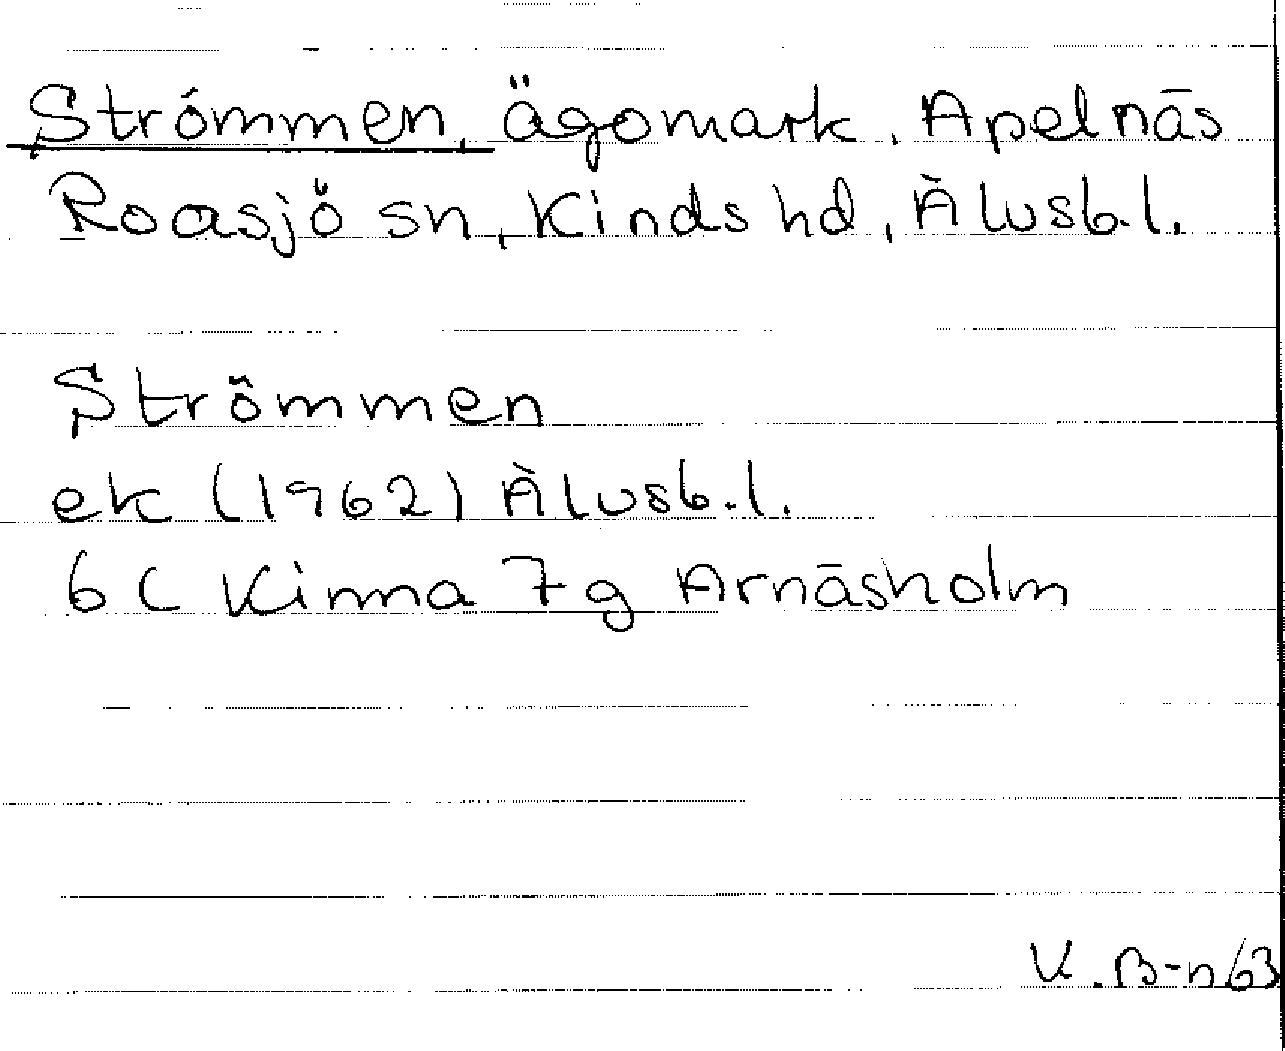 Strömmen, ägomark, Apelnäs
Roasjö sn, Kinds hd, Älvsb.l.
Strömmen
ek (1962) Älvsb.l.
6 C Kinna 7 g Arnäsholm
K. B-n 63